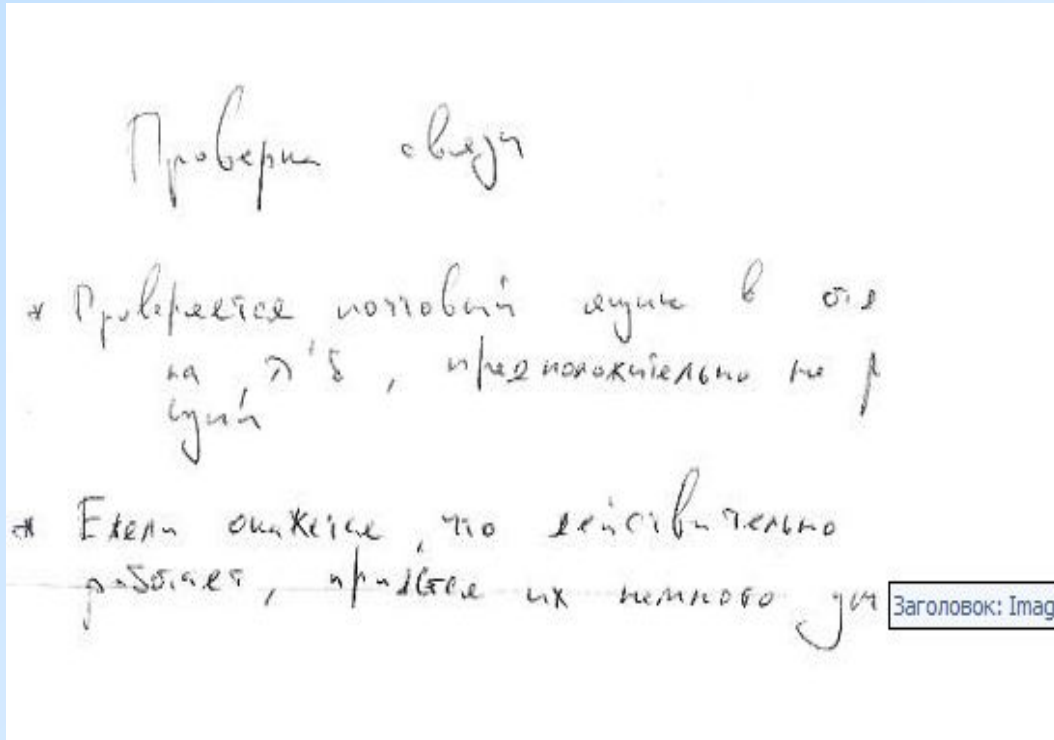 Проверка связи
* Проверяется почтовый ящик в
на, предположительно не р
щий
* Ежели окажется, что действительно
работает, придётся их немного
Заголовок: Imag